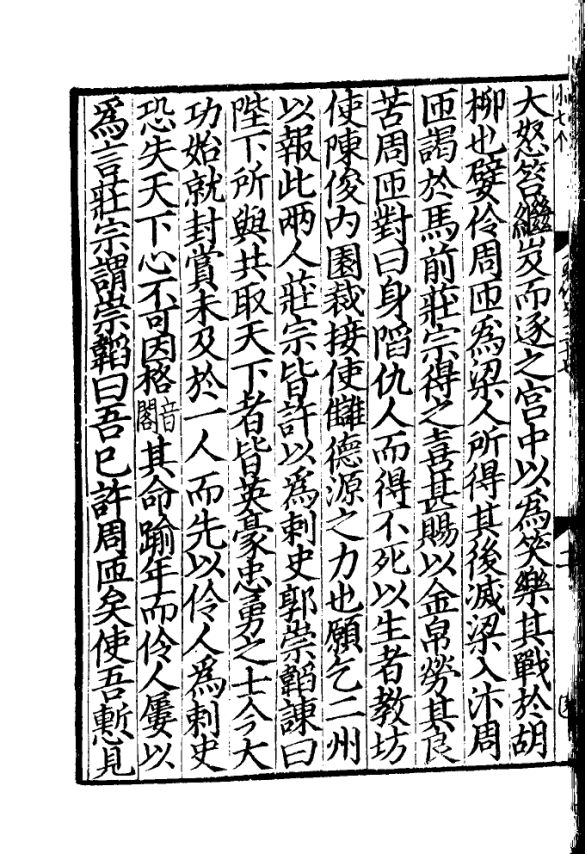 大怒笞繼岌而逐之宮中以為笑樂其戰於胡
柳也嬖伶周匝為梁人所得其後滅梁入汴周
匝謁於馬前莊宗得之喜甚賜以金帛勞其良
苦周匝對曰身陷仇人而得不死以生者教坊
使陳俊內園裁接使儲德源之力也願乞二州
以報此兩人莊宗皆許以為刺史郭崇韜諫曰
陛下所與共取天下者皆英豪忠勇之士今大
功始就封賞未及於一人而先以伶人為刺史
恐失天下心不可因格音閣其命踰年而伶人屢以
為言莊宗謂崇韜曰吾已許周匝矣使吾慙見